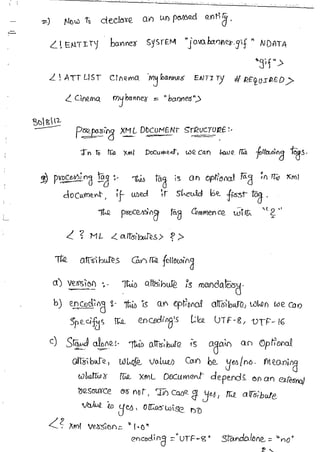 =) Now To declare an un parsed entity.
<! ENTITY banner SYSTEM "java banner.gif" NDATA
"gif">
<! ATTLIST Cinema mybanner ENTITY # REQUIRED>
< Cinema mybanner = "banner">
30/8/12
Preparing XML DOCUMENT STRUCTURE :-
In to the xml Document, we can have the following tags.
processing tag :- This tag is an optional Tag in the xml
document, if used it should be first tag.
The processing tag Commence with "<?"
<? ML <attributes> ?>
The attributes Can the following
a) version :- This attribute is mandatory.
b) encoding :- this is an optional attribute, when we can
Specifys the encoding's like UTF-8, UTF-16
c) Stand alone :- This attribute is again an Optional
attribute, whose values can be yes/no. meaning
whether the XML Document depends on an external
resource or not, In case of yes, the attribute
value is yes, otherwise no
<? xml version= "1.0"
encoding = "UTF-8" Standalone = "no"
?>